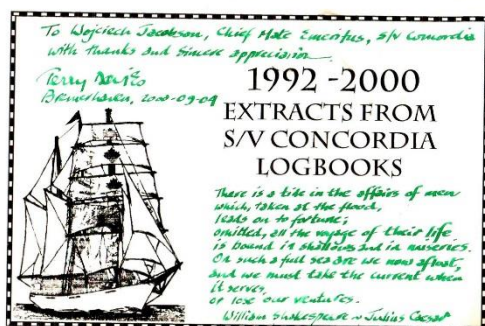 To Wojciech Jacobson, Chief Mate Emeritus, S/V Concordia
with thanks and sincere appreciation
Terry Davies
Bremerhaven, 2000-09-04
1992 -2000
EXTRACTS FROM
S/V CONCORDIA
LOGBOOKS
There is a tide in the affairs of men
which, taken at the flood,
leads on to fortune;
omitted, all the voyage of their life
is bound in shallows and in miseries.
On such a full sea are we now afloat,
and we must take the current when
it serves,
or lose our ventures.
William Shakespeare ~ Julius Caesar